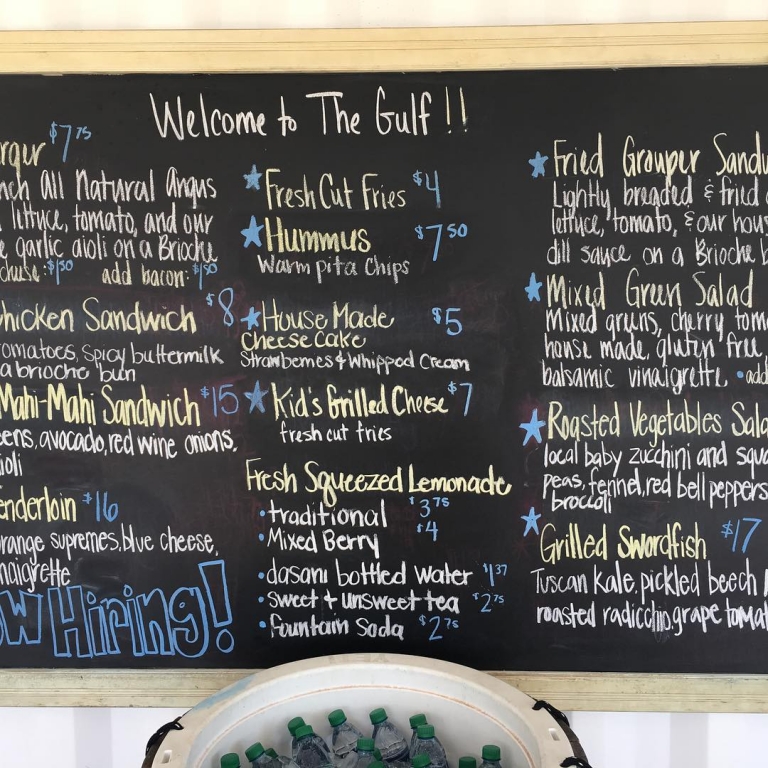 Welcome to The Gulf !!
$7 75
All Natural Angus
lettuce, tomato, and our
garlic aioli on a Brioche
$1 50 add bacon: $1 50
Chicken Sandwich $8
tomatoes, spicy buttermilk
a brioche bun
Mahi-Mahi Sandwich $15
avocado, red wine onions,
$16
orange supremes, blue cheese,
Hiring!
Fresh Cut Fries $4
Hummus $7 50
Warm pita Chips
House Made $5
Cheesecake
Strawberries & Whipped Cream
Kid's Grilled Cheese $7
fresh cut fries
Fresh Squeezed Lemonade
• traditional $3 75
• Mixed Berry $4
• dasani bottled water $1 37
• sweet + unsweet tea $2 75
• fountain soda $2 75
Fried Grouper
Lightly breaded & fried
lettuce, tomato, & our
dill sauce on a Brioche
Mixed Green Salad
Mixed greens, cherry
house made, gluten free
balsamic vinaigrette • add
Roasted Vegetables
local baby zucchini and
peas, fennel, red bell peppers
broccoli
Grilled Swordfish $17
Tuscan kale, pickled beech
roasted radicchio, grape